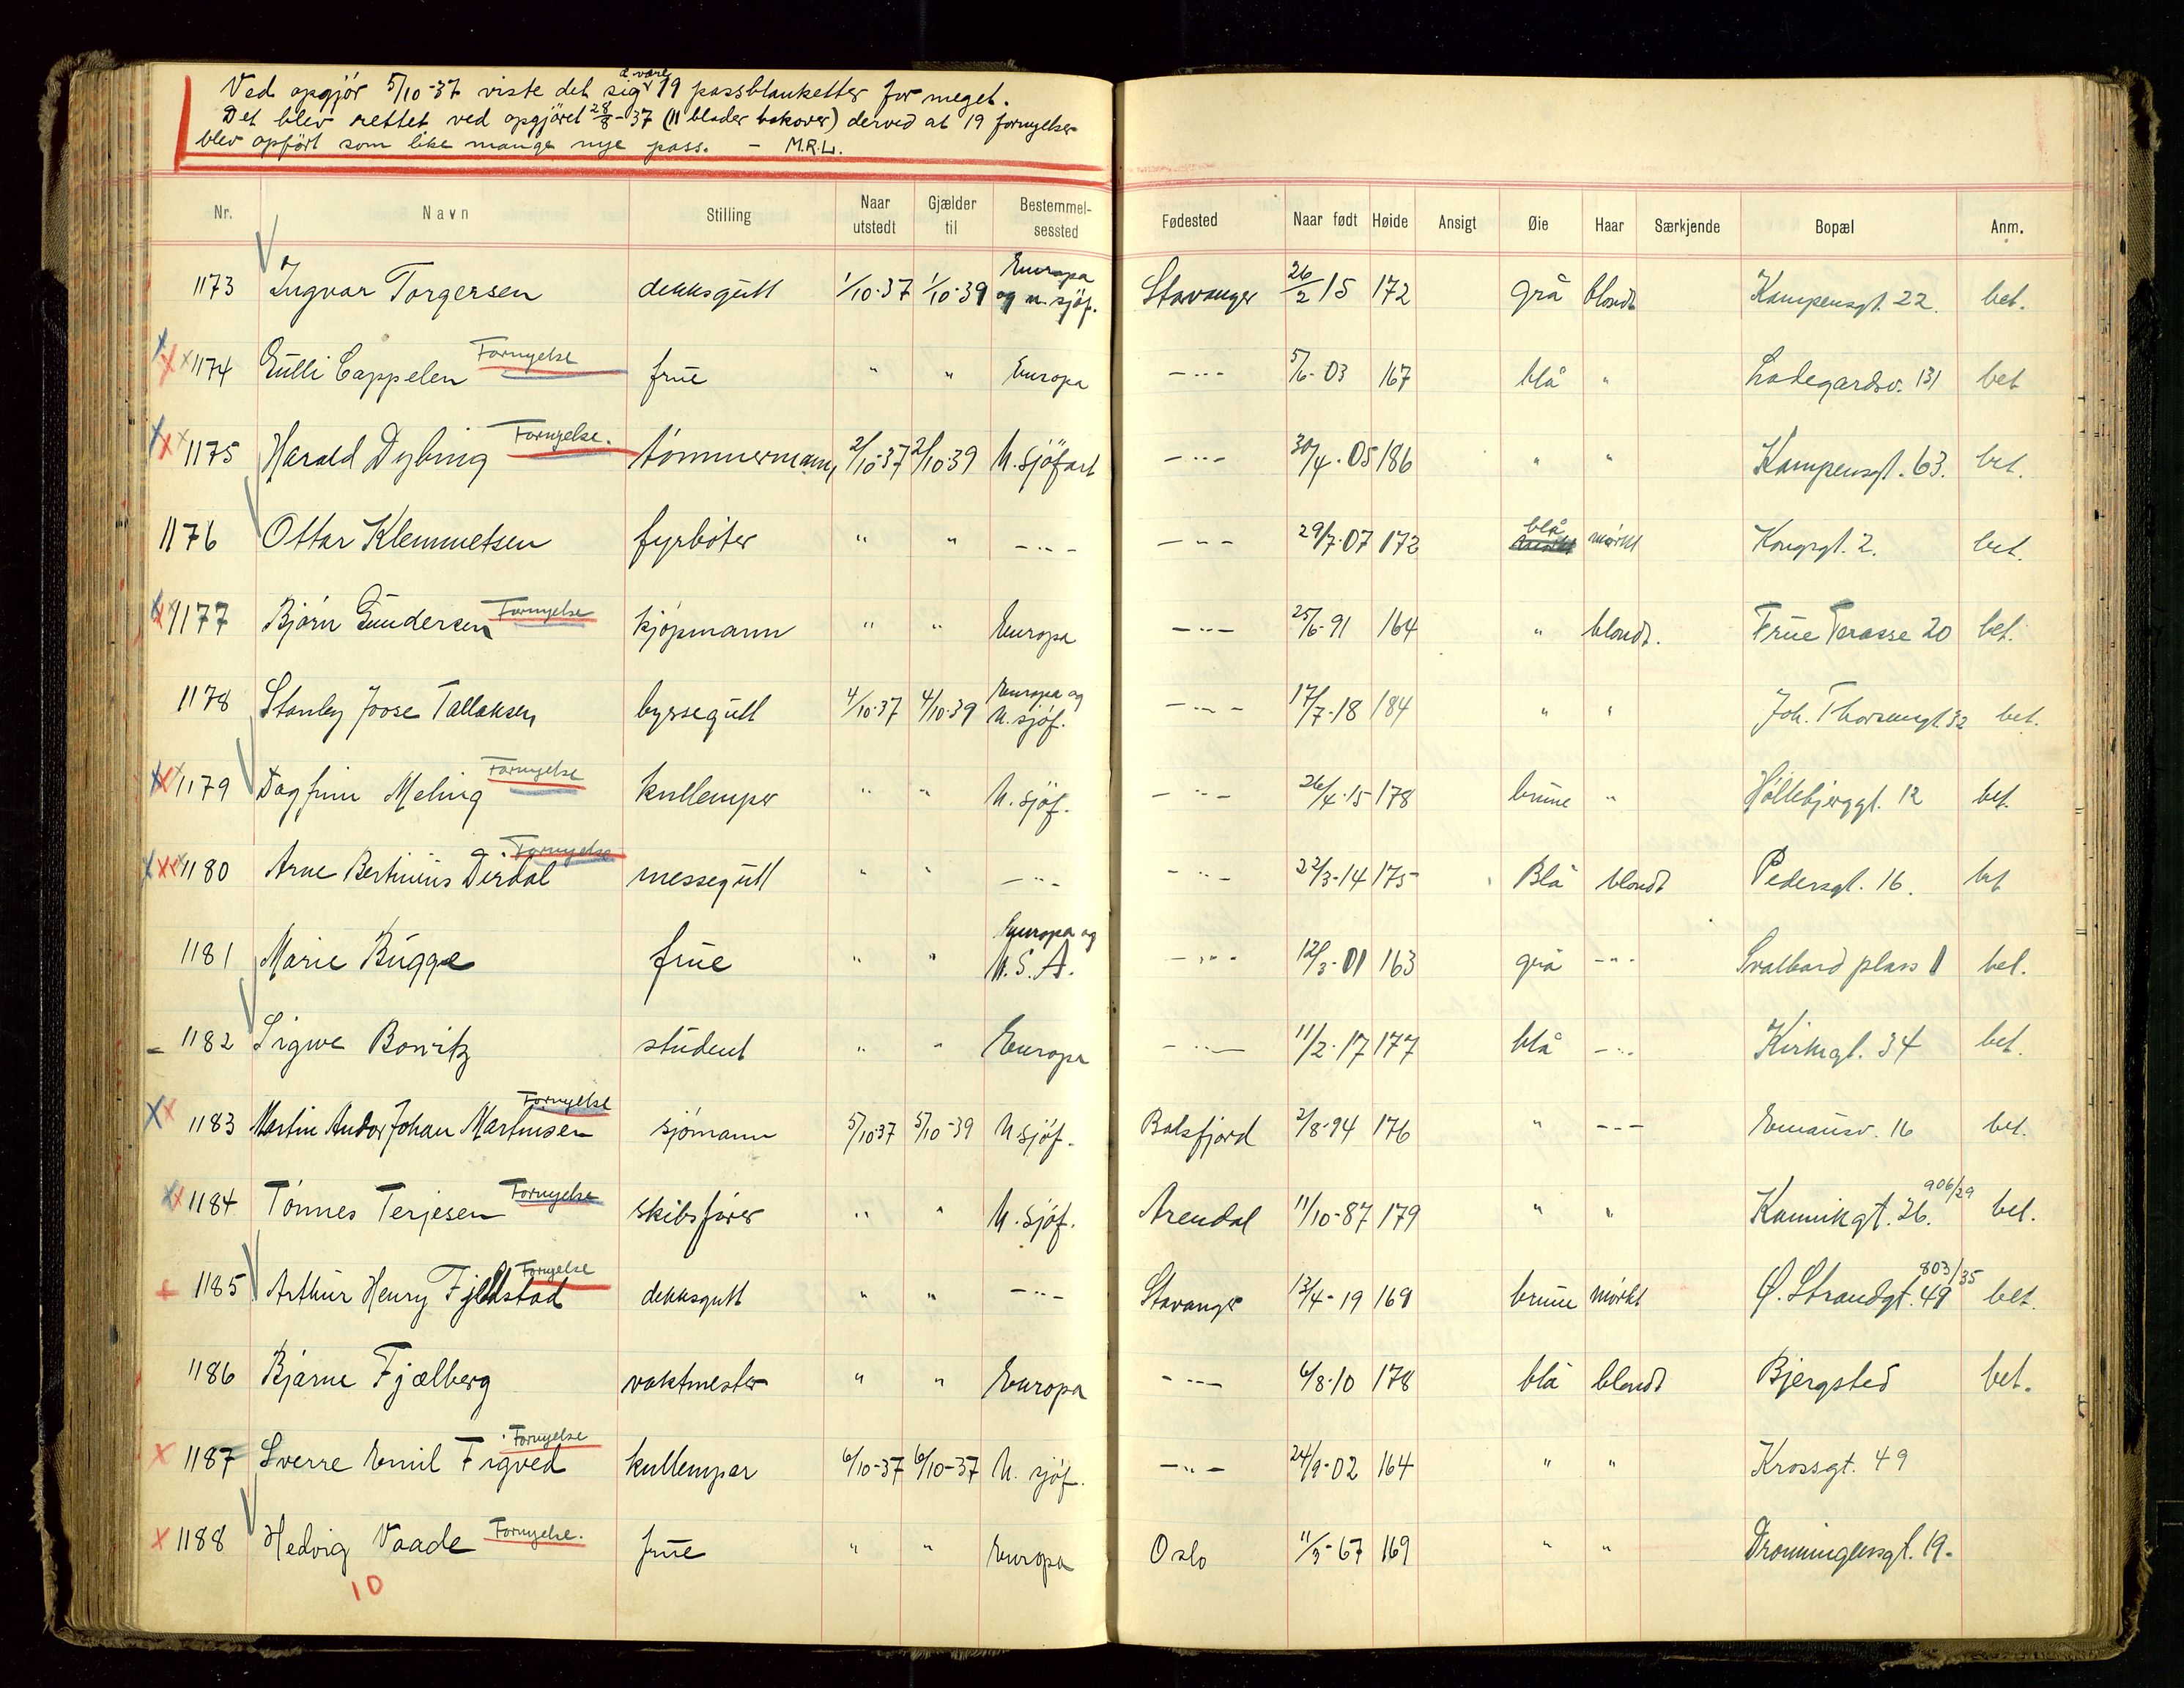 Ved opgjör 5/10-37 viste det sig å være 19 passblanketter for meget.
Det blev rettet ved opgjöret 28/8-37 (11 blader bakover) derved at 19 fornyelser
blev opfört som like mange nye pass. - M.R.L.
Nr. Navn Stilling Naar utstedt Gjælder til Bestemmelsessted Fødested Naar født Høide Ansigt Øie Haar Særkjende Bopæl Anm.
1173 Ingvar Torgersen dekksgutt 1/10-37 1/10-39 Europa og u. sjöf. Stavanger 26/2 15 172 grå blondt Kampensgt. 22. bet.
1174 Gulli Cappelen Fornyelse frue " " Europa -"- 5/6-03 167 blå " Ladegardsv. 131 bet
1175 Harald Dybing Fornyelse. tømmermann 2/10-37 2/10-39 U. sjöfart -"- 30/4-05 186 " " Kampensgt. 63. bet.
1176 Ottar Klemmetsen fyrbøter " " -"- -"- 29/7-07 172 blå mørkt Kongsgt. 2. bet.
1177 Bjørn Gundersen Fornyelse kjøpmann " " Europa -"- 25/6-91 164 " blondt. Frue Terasse 20 bet.
1178 Stanley Joose Tallaksen byssegutt 4/10-37 4/10-39 Europa og U. sjöf. -"- 17/7-18 184 " " Joh. Thorsensgt 32 bet.
1179 Dagfinn Meling Fornyelse kullemper " " U. sjöf. -"- 26/4-15 178 brune " Høllebjerggt. 12 bet.
1180 Arne Bertinius Dirdal Fornyelse messegutt " " -"- -"- 22/3-14 175 Blå blondt Pedersgt. 16. bet
1181 Marie Bugge frue " " Europa og U.S.A. -"- 12/3-01 163 grå -"- Svalbard plass 1 bet.
1182 Sigwe Bowitz student " " Europa -"- 11/2-17 177 blå -"- Kirkegt. 34 bet.
1183 Martin Andor Johan Martinsen Fornyelse sjømann 5/10-37 5/10-39 U. sjöf. Balsfjord 2/8-94 176 " -"- Emausv. 16 bet.
1184 Tønnes Terjesen Fornyelse skibsfører " " U. sjöf. Arendal 11/10-87 179 " " Kannikgt. 26. 906/29 bet.
1185 Arthur Henry Fjeldstad Fornyelse dekksgutt " " -"- Stavanger 13/4-19 169 brune mørkt Ø. Strandgt. 49 803/35 bet.
1186 Bjarne Fjælberg vaktmester " " Europa -"- 6/8-10 178 blå blondt Bjergsted bet.
1187 Sverre Emil Figved Fornyelse kullemper 6/10-37 6/10-37 U. sjöf. -"- 24/9-02 164 " " Krossgt. 49
1188 Hedvig Vaade Fornyelse. frue " " Europa Oslo 11/3-67 169 " " Dronningensgt. 19.
10